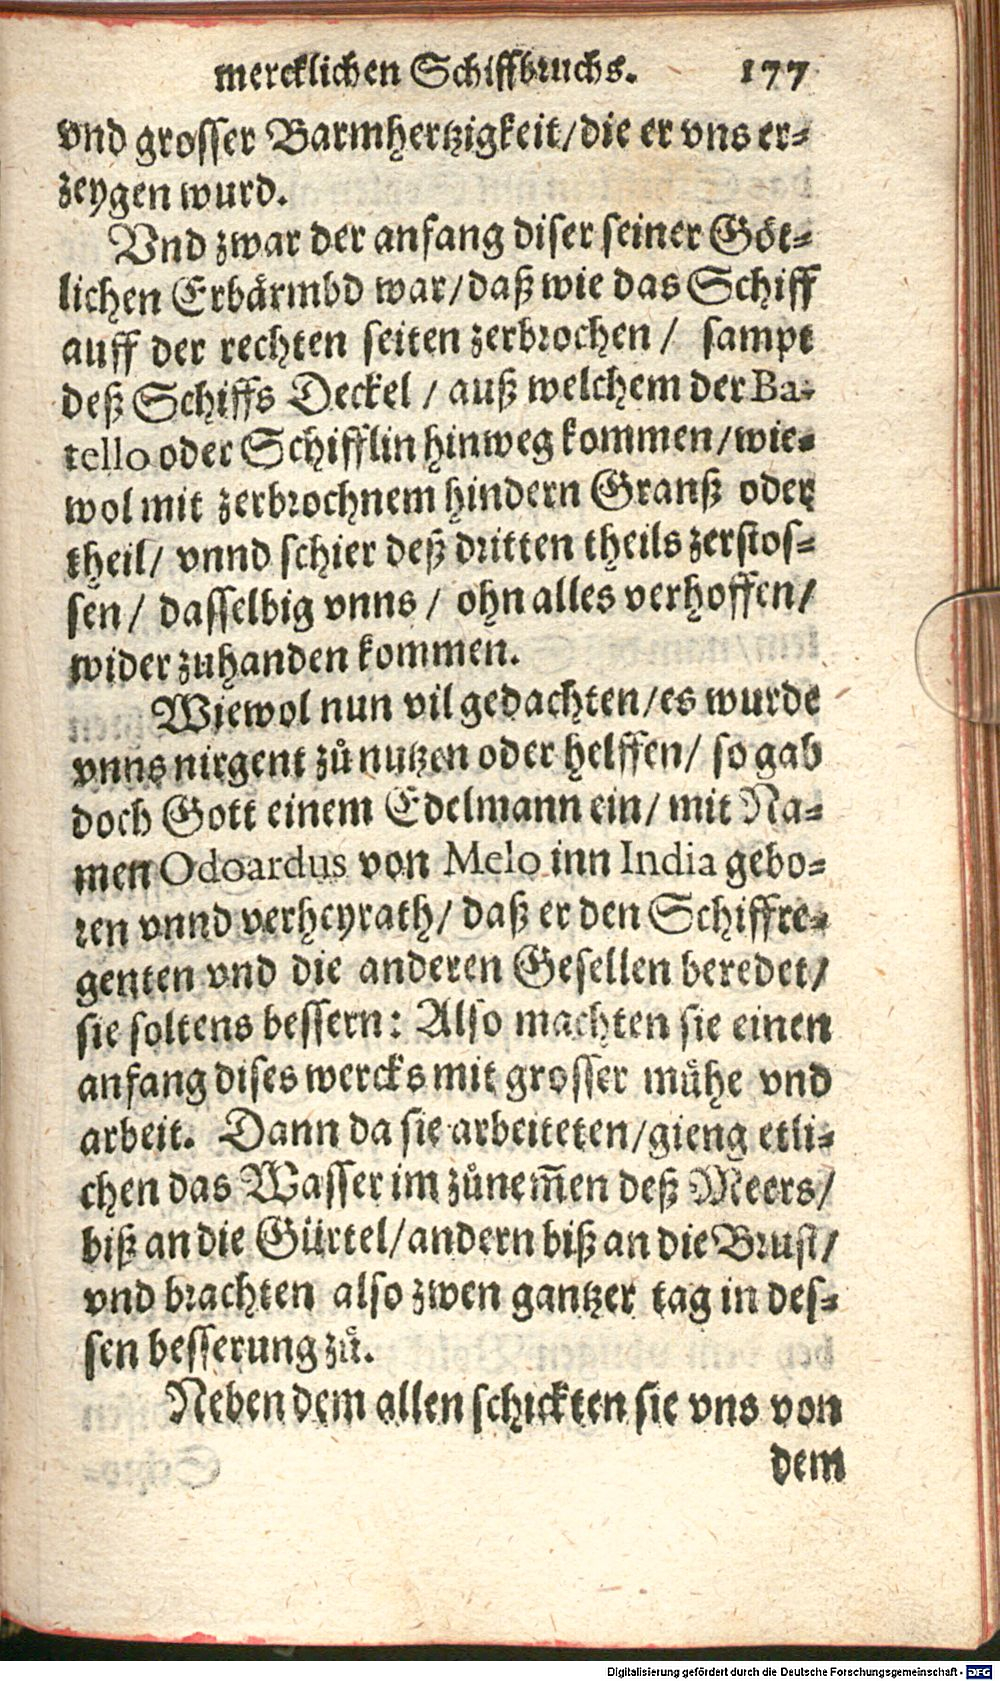 mercklichen Schiffbruchs. 177
vnd grosser Barmhertzigkeit/die er vns er-
zeygen wurd.
Vnd zwar der anfang diser seiner Göt-
lichen Erbärmbd war/daß wie das Schiff
auff der rechten seiten zerbrochen / sampt
deß Schiffs Deckel / auß welchem der Ba-
tello oder Schifflin hinweg kommen/wie-
wol mit zerbrochnem hindern Granß oder
theil/ vnnd schier deß dritten theils zerstos-
sen / dasselbig vnns / ohn alles verhoffen/
wider zuhanden kommen.
Wiewol nun vil gedachten/es wurde
vnns nirgent zů nutzen oder helffen/ so gab
doch Gott einem Edelmann ein/ mit Na-
men Odoardus von Melo inn India gebo-
ren vnnd verheyrath/ daß er den Schiffre-
genten vnd die anderen Gesellen beredet/
sie soltens bessern: Also machten sie einen
anfang dises wercks mit grosser mühe vnd
arbeit. Dann da sie arbeiteten/gieng etli-
chen das Wasser im zůnem̄en deß Meers/
biß an die Gürtel/andern biß an die Brust/
vnd brachten also zwen gantzer tag in des-
sen besserung zů.
Neben dem allen schickten sie vns von
dem
Digitalisierung gefördert durch die Deutsche Forschungsgemeinschaft - DFG